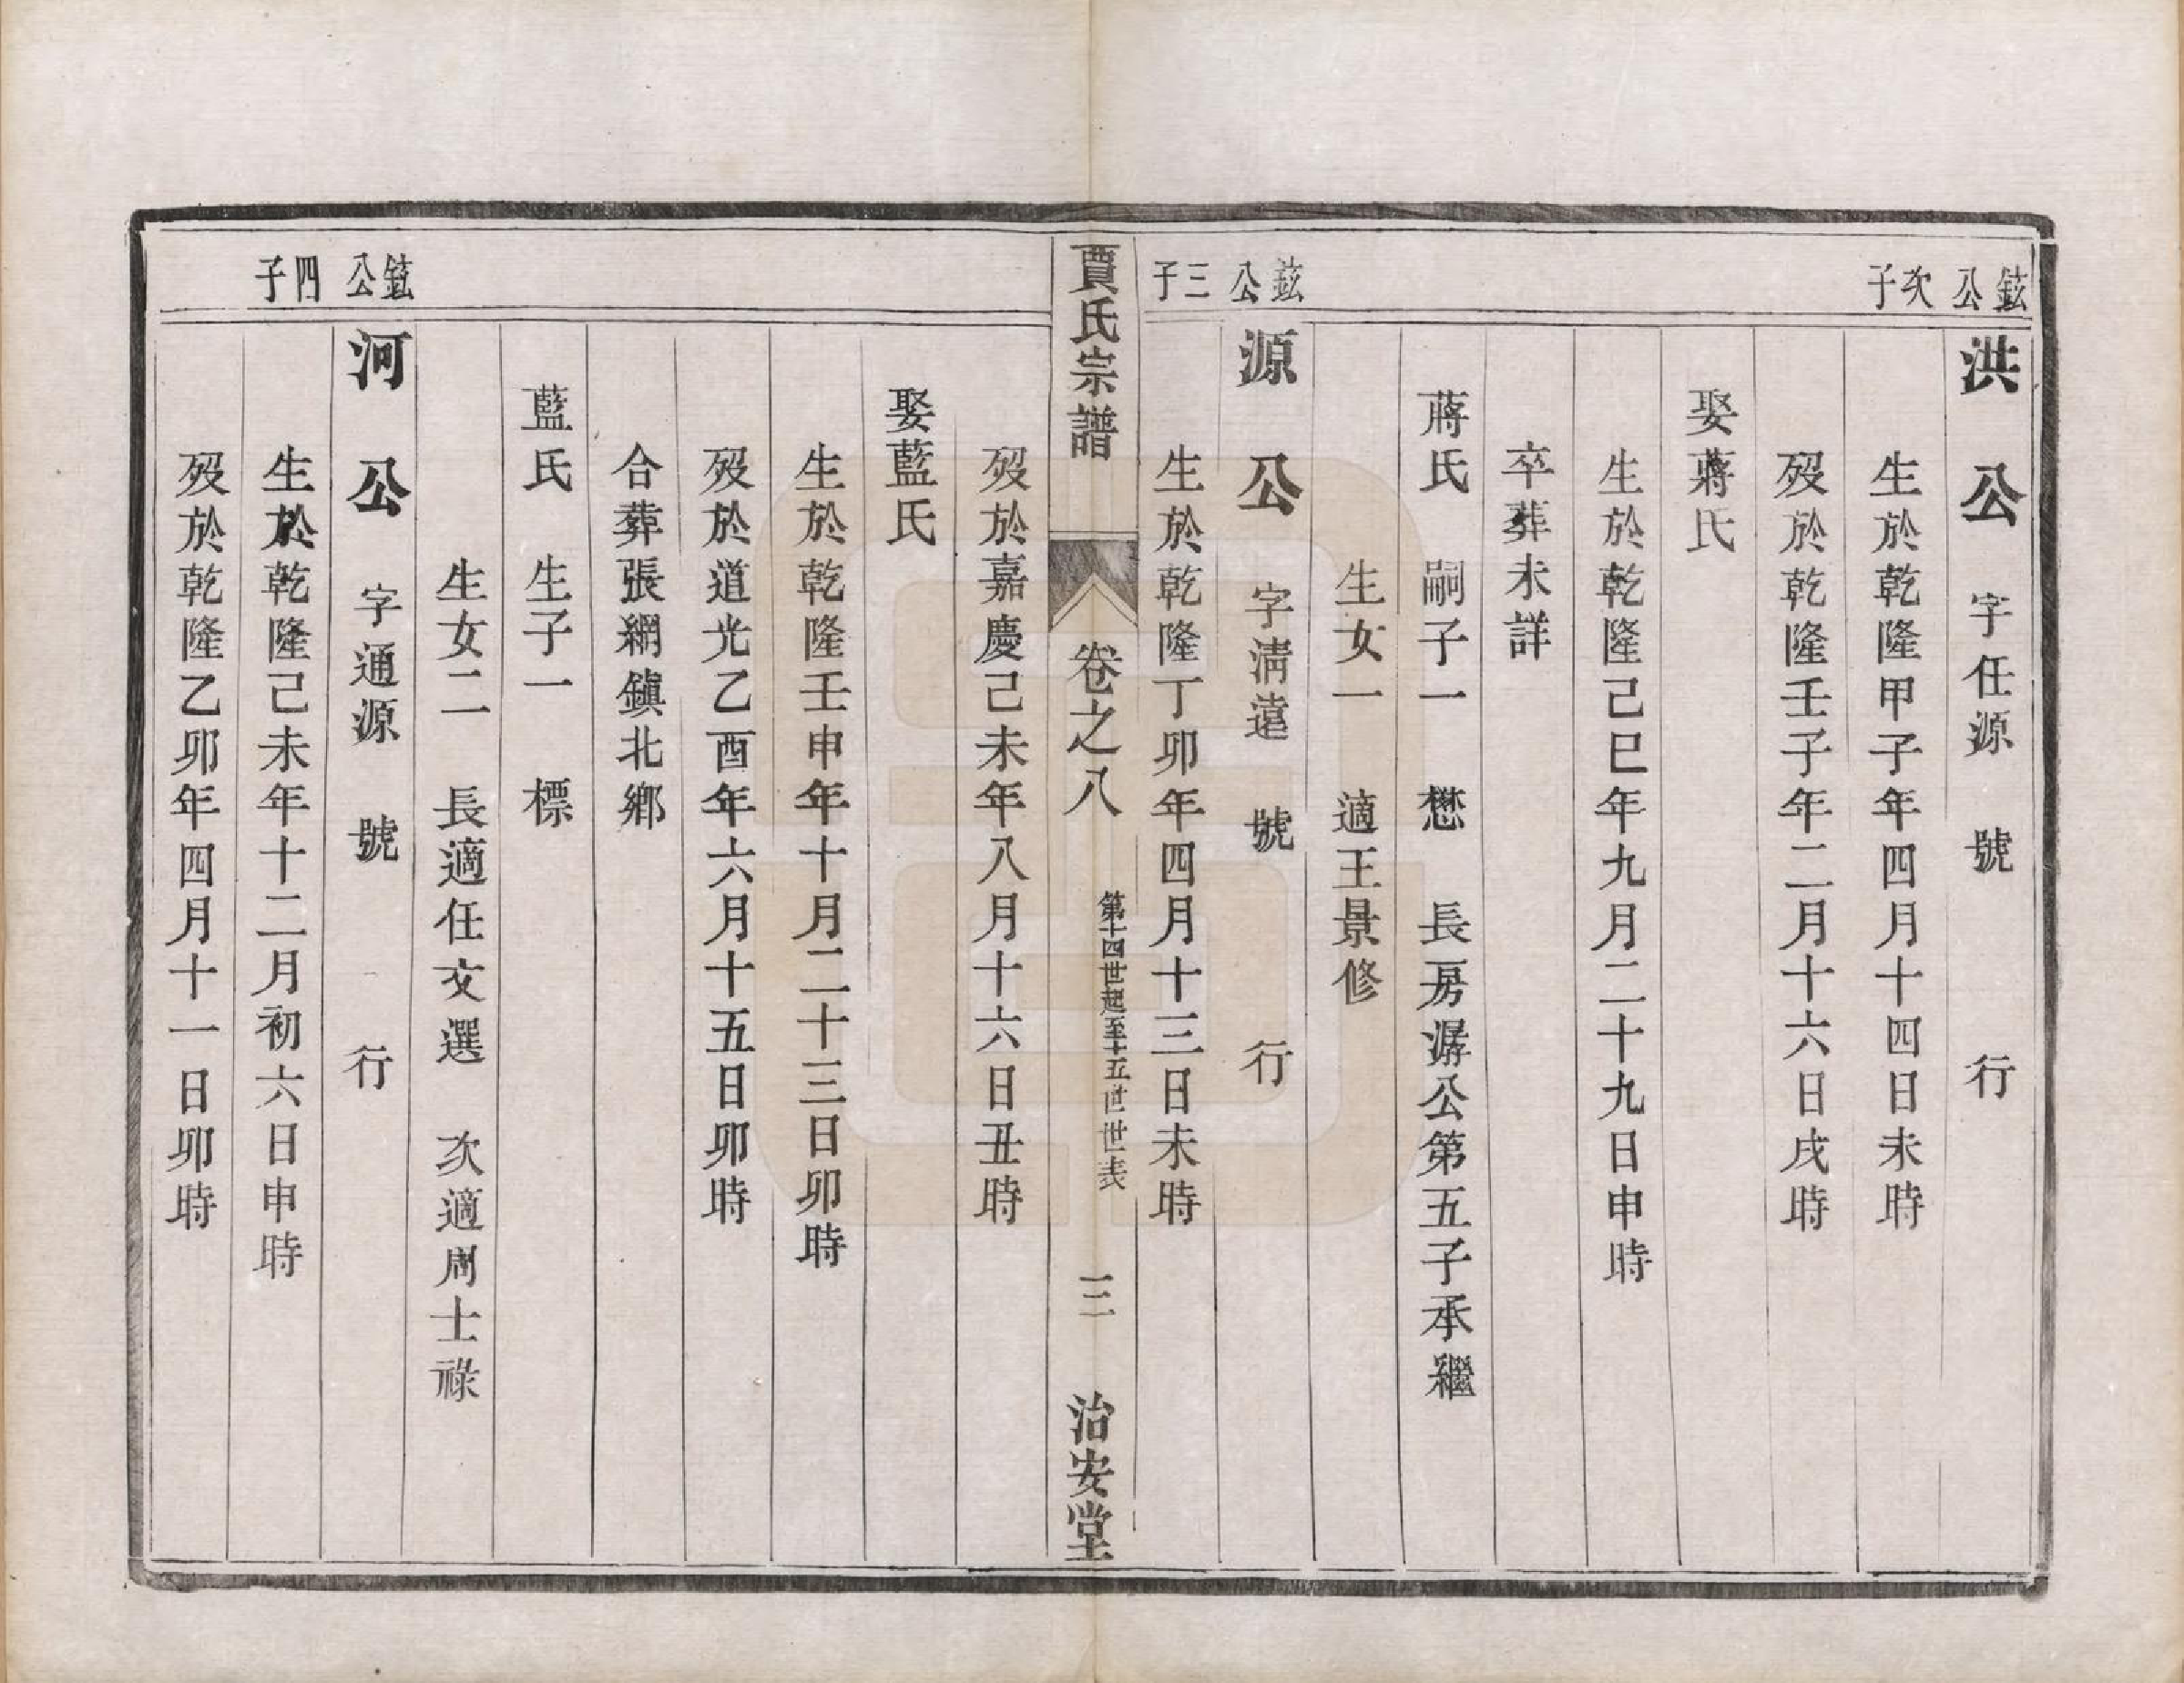 鉉公次子
洪公 字任源 號 行
生於乾隆甲子年四月十四日未時
歿於乾隆壬子年二月十六日戌時
娶蔣氏
生於乾隆己巳年九月二十九日申時
卒葬未詳
蔣氏 嗣子一 懋 長房潺公第五子承繼
生女一 適王景修
鉉公三子
源公 字清遠 號 行
生於乾隆丁卯年四月十三日未時
賈氏宗譜 卷之八 第十四世起至十五世世表 三 治安堂
歿於嘉慶己未年八月十六日丑時
娶藍氏
生於乾隆壬申年十月二十三日卯時
歿於道光乙酉年六月十五日卯時
合葬張網鎮北鄉
藍氏 生子一 標
生女二 長適任文選 次適周士祿
鉉公四子
河公 字通源 號 行
生於乾隆己未年十二月初六日申時
歿於乾隆乙卯年四月十一日卯時